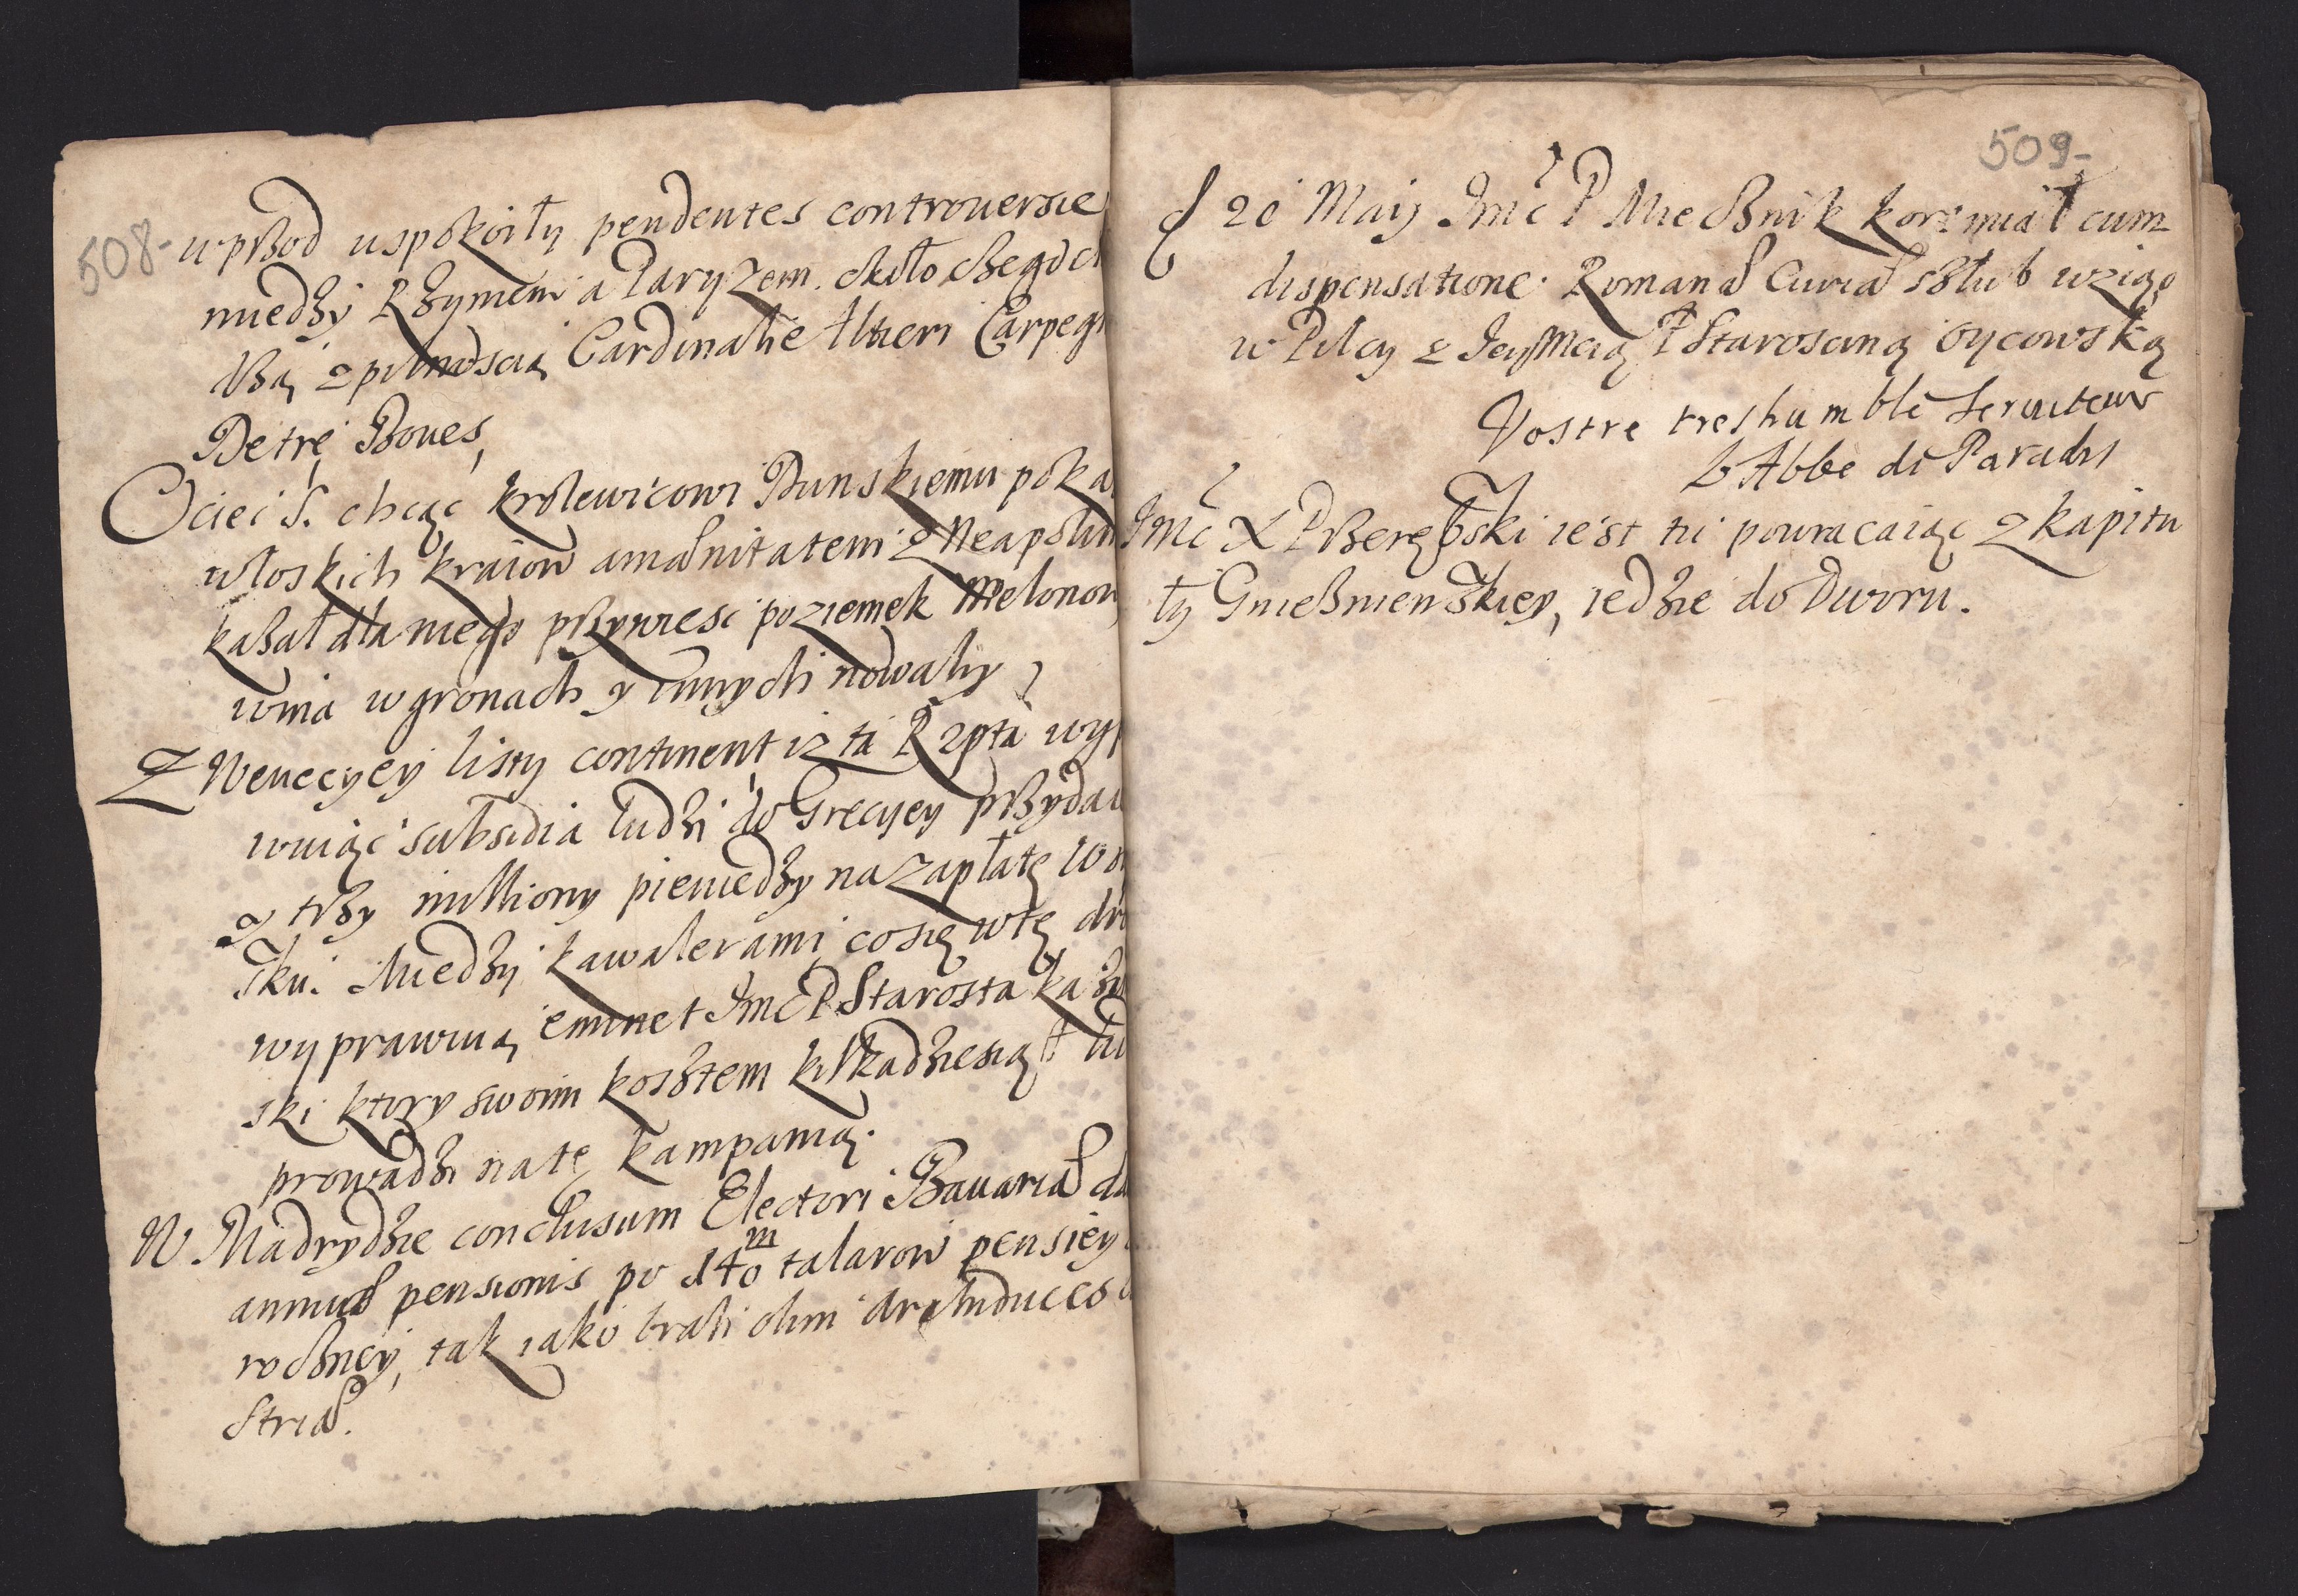 508-
wprzod uspokoiły pendentes controuersie
miedzy Rzymem a Paryzem. około czego ch
dzą z pilnoscią Cardinałie Altieri Carpegn
Petre Boues,
Ociec S. chcąc krolewicowi Dunskiemu poka
włoskich kraiow amænitatem z Neapolu
kazał dla niego przywiesc poziemek Melonow
wina w gronach y innych nowaliy
Z Wenecyey listy continent iz ta Rzpta wyp
wuiąc subsidia ludzi do Grecyey przydaie
y trzy milliony pieniedzy na zapłatę wo
sku. Miedzy kawalerami co się w tę dro
wyprawuią eminet Jmc P Starosta Kazi
ski ktory swoim kosztem kilkadziesiąt lu
prowadzi na tę kampanią.
W Madrydzie conclusum Electori Bauariæ da
annuæ pensionis po 140 m talarow pensiey
roczney, tak iako brali olim Archiduces
striæ.
509-
d 20 Maij Jmć P Miecznik kor: miał cum
dispensatione Romanæ Curiæ szlub wziąc
w Pilcy z Jeymcią P Staroscną Oycowską
Vostre tres humble seruiteur
L Abbe de Paradis
Jmć X Przerębski iest tu powracaiąc z kapitu
ły Gnieznienskiey, iedzie do Dworu.